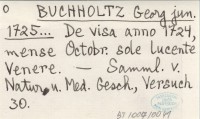 o BUCHHOLTZ Georg jun.
1725... De visa anno 1724,
mense Octobr. sole lucente
Venere. — Samml. v.
Natur u. Med. Gesch, Versuch
30.